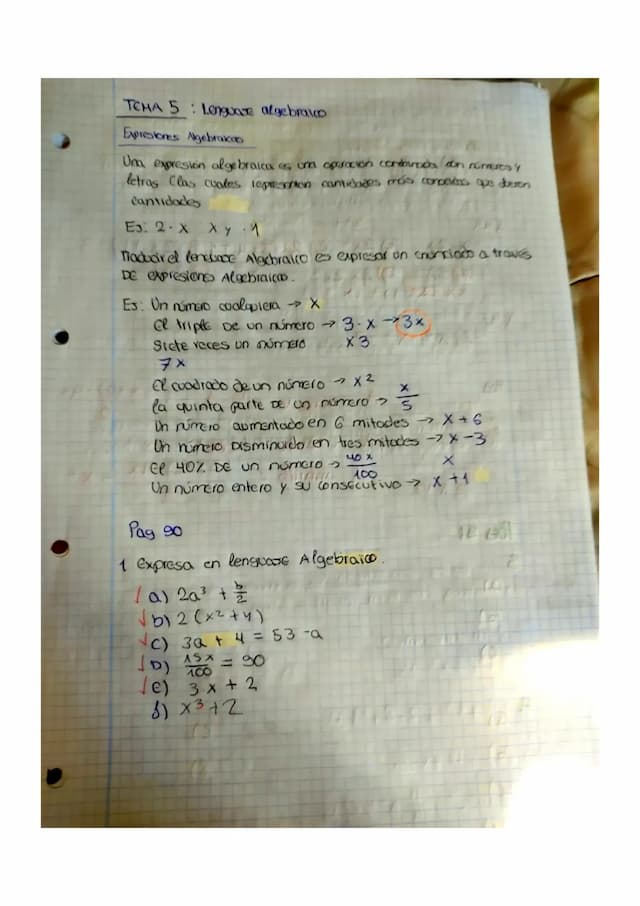 TEMA 5 : Lenguaje algebraico
Expresiones Algebraicas
Una expresión algebraica es una operación combinada con números y
letras (las cuales representan cantidades más concretas que
cantidades
Ej: 2 · x x y · 1
Traducir el lenguaje Algebraico es expresar un enunciado a través
DE expresiones Algebraicas.
Ej: Un número cualquiera → x
El triple DE un número → 3 · x → 3x
Siete veces un número x 3
7x
El cuadrado de un número → x²
la quinta parte DE un número → x/5
Un número aumentado en 6 mitades → x + 6
Un número DISMINUIDO en tres mitades → x - 3
El 40% DE un número → 40x/100 x
Un número entero y su consecutivo → x + 1
Pag 90
1 Expresa en lenguaje Algebraico.
a) 2a³ + b/2
b) 2 (x² + y)
c) 3a + 4 = 53 - a
D) 15x/100 = 90
e) 3x + 2
f) x³ + 2